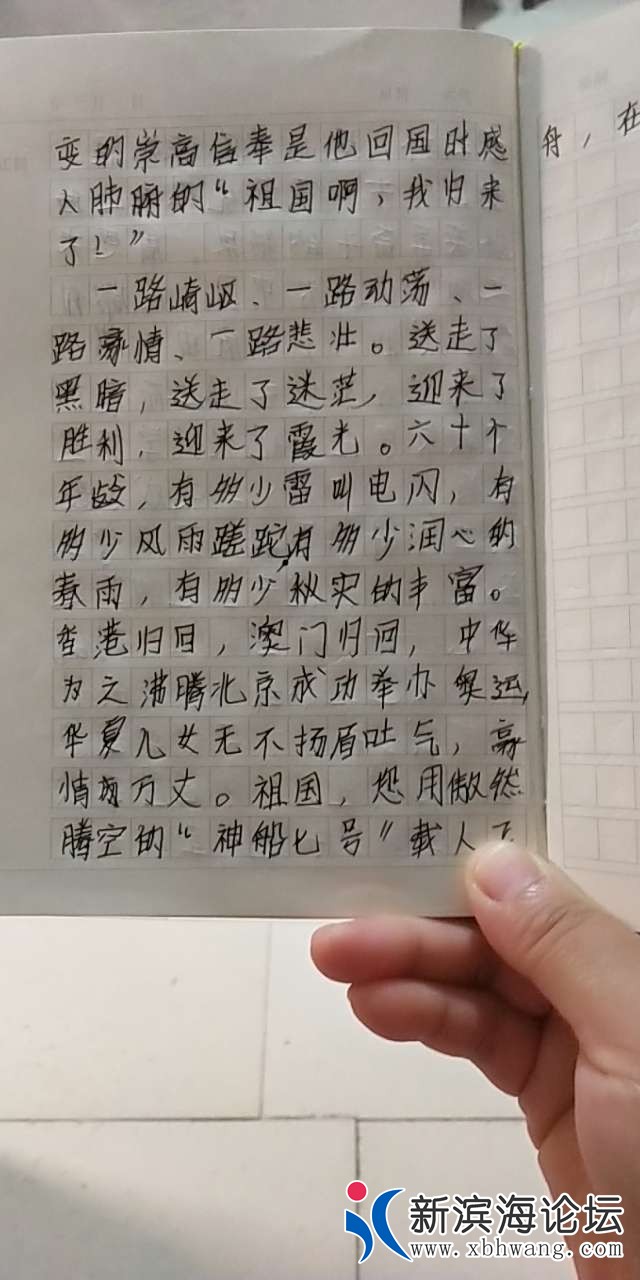 变的崇高信奉是他回国时感
人肺腑的“祖国啊，我归来
了！”
一路崎岖、一路动荡、一
路豪情、一路悲壮。送走了
黑暗，送走了迷茫，迎来了
胜利，迎来了霞光。六十个
年龄，有多少雷叫电闪，有
多少风雨蹉跎有多少润心的
春雨，有多少秋实的丰富。
香港归回，澳门归回，中华
为之沸腾北京成功举办奥运，
华夏儿女无不扬眉吐气，豪
情万丈。祖国，您用傲然
腾空的“神船七号”载人飞
舟，在
新滨海论坛
www.xbhwang.com